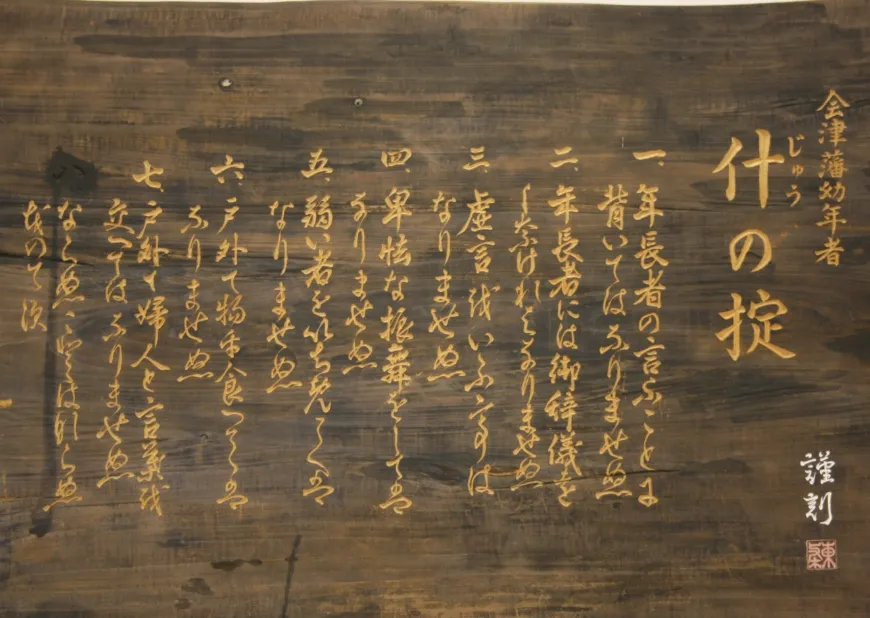 会津藩幼年者
じゅう
什の掟
一、年長者の言ふことに
背いてはなりませぬ
二、年長者には御辞儀を
しなければなりませぬ
三、虚言をいふ事は
なりませぬ
四、卑怯な振舞をしては
なりませぬ
五、弱い者をいぢめては
なりませぬ
六、戸外で物を食べては
なりませぬ
七、戸外で婦人と言葉を
交へてはなりませぬ
八
ならぬことはならぬ
ものです
謹刻